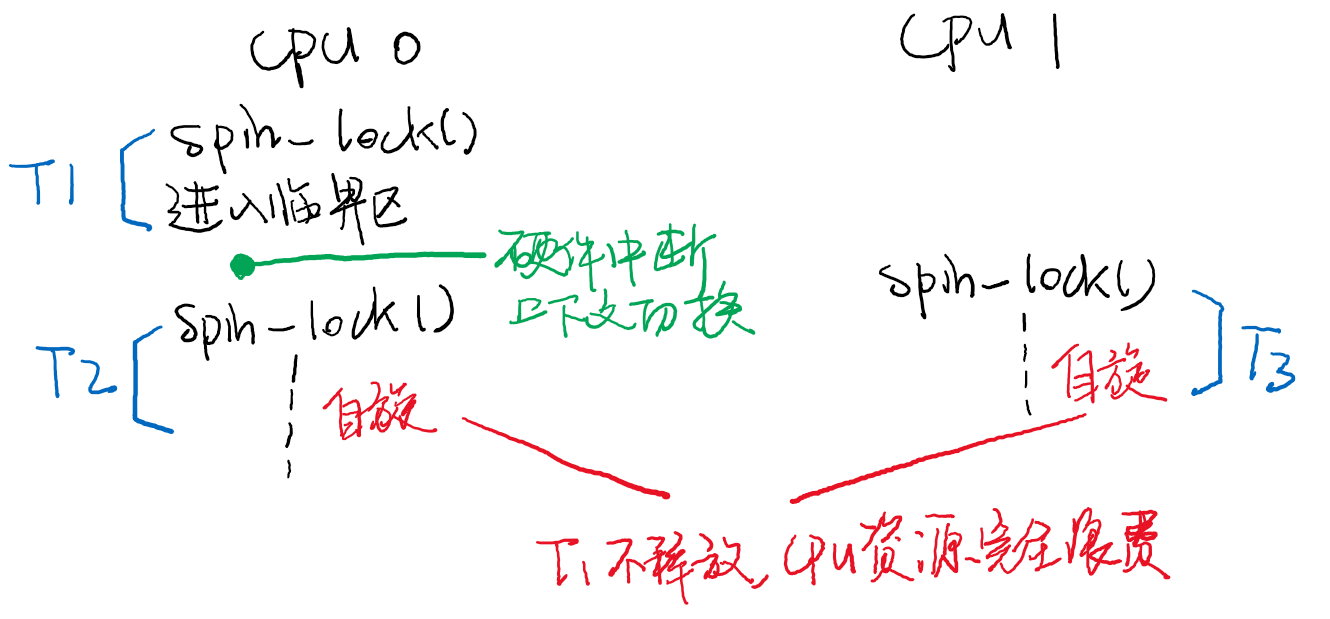 CPU 0
CPU 1
T1
spin-lock()
进入临界区
硬件中断
上下文切换
T2
spin-lock()
自旋
spin-lock()
自旋
T3
T1不释放,CPU资源完全浪费